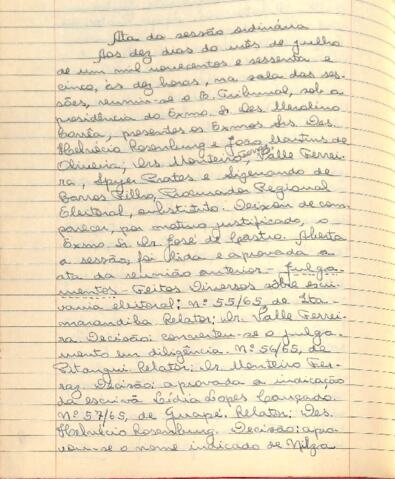 Ata da sessão ordinária
Aos dez dias do mês de julho
de um mil novecentos e sessenta e
cinco, às dez horas, na sala das ses-
sões, reuniu-se o E. Tribunal, sob a
presidência do Exmo. Sr. Des. Merolino
Corrêa, presentes os Exmos. Srs. Des.
Helvécio Rosenburg e João Martins de
Oliveira; Drs. Monteiro Ferraz, Valle Ferrei-
ra, Speyer Prates e Sigenando de
Barros Filho, Procurador Regional
Eleitoral, substituto. Deixou de com-
parecer, por motivo justificado, o
Exmo. Sr. Dr. José de Castro. Aberta
a sessão, foi lida e aprovada a
ata da reunião anterior - Julga-
mentos - Feitos Diversos sôbre escri-
vania eleitoral: Nº 55/65, de Ita-
marandiba Relator: Dr. Valle Ferrei-
ra. Decisão: converteu-se o julga-
mento em diligência. Nº 56/65, de
Pitangui. Relator: Dr. Monteiro Fer-
raz. Decisão: aprovada a indicação
da escrivã Lídia Lopes Cançado.
Nº 57/65, de Guapé. Relator: Des.
Helvécio Rosenburg. Decisão: apro-
vou-se o nome indicado de Nilza